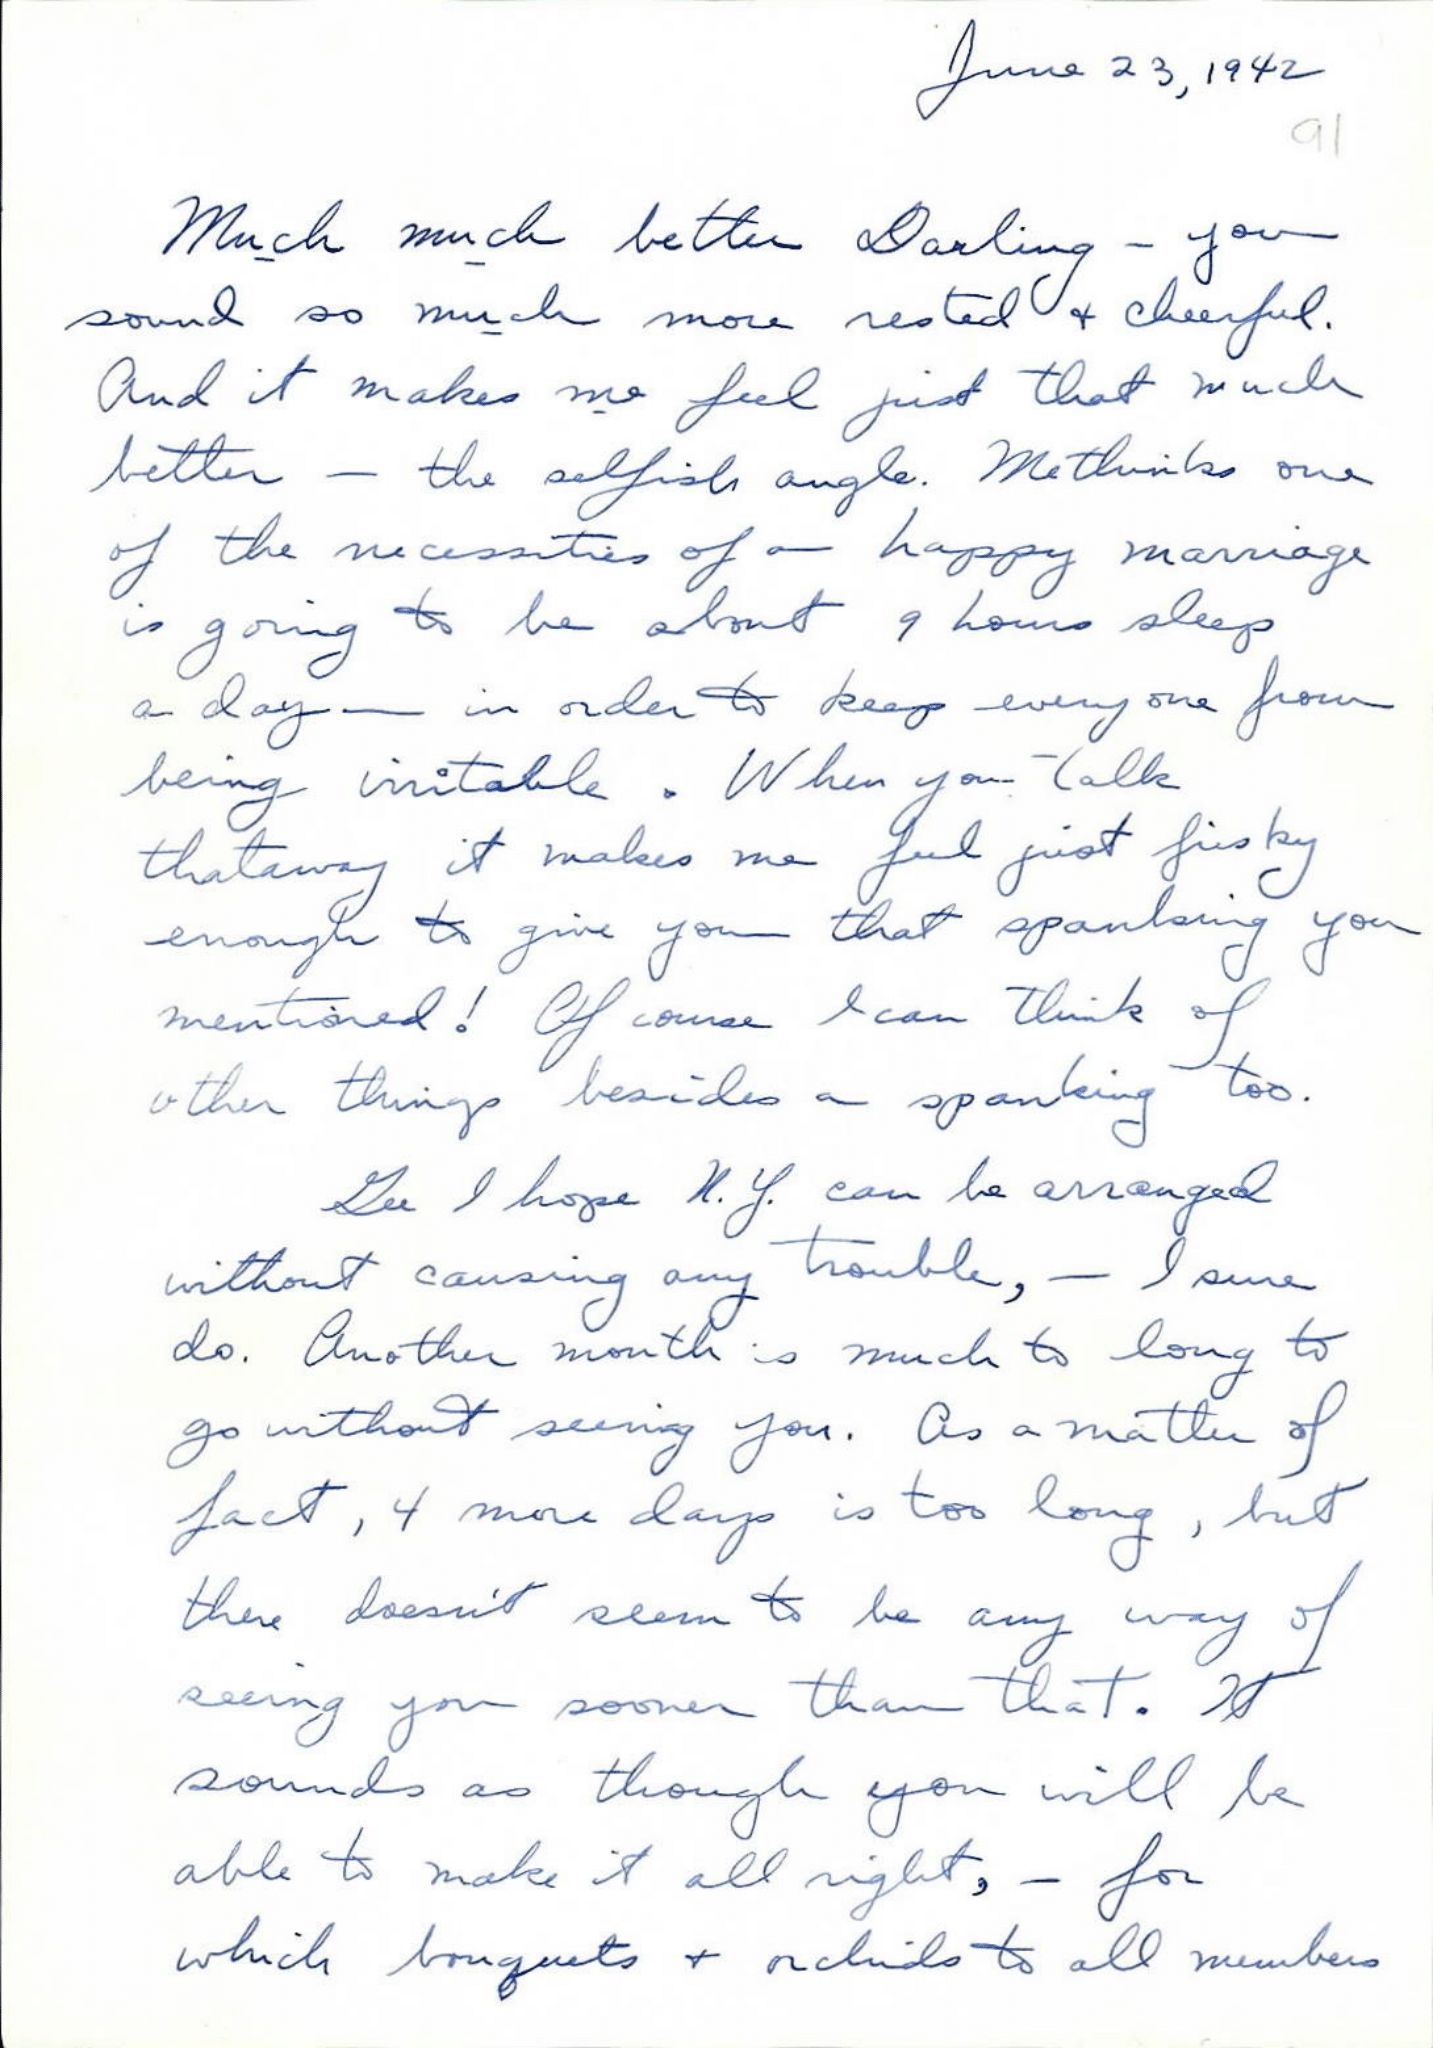 June 23, 1942
91
Much much better Darling - you
sound so much more rested + cheerful.
And it makes me feel just that much
better - the selfish angle. Methinks one
of the necessities of a happy marriage
is going to be about 9 hours sleep
a day - in order to keep everyone from
being irritable. When you talk
thataway it makes me feel just frisky
enough to give you that spanking you
mentioned! Of course I can think of
other things besides a spanking too.
Gee I hope N.Y. can be arranged
without causing any trouble, - I sure
do. Another month is much to long to
go without seeing you. As a matter of
fact, 4 more days is too long, but
there doesn't seem to be any way of
seeing you sooner than that. It
sounds as though you will be
able to make it all right, - for
which bouquets + orchids to all members